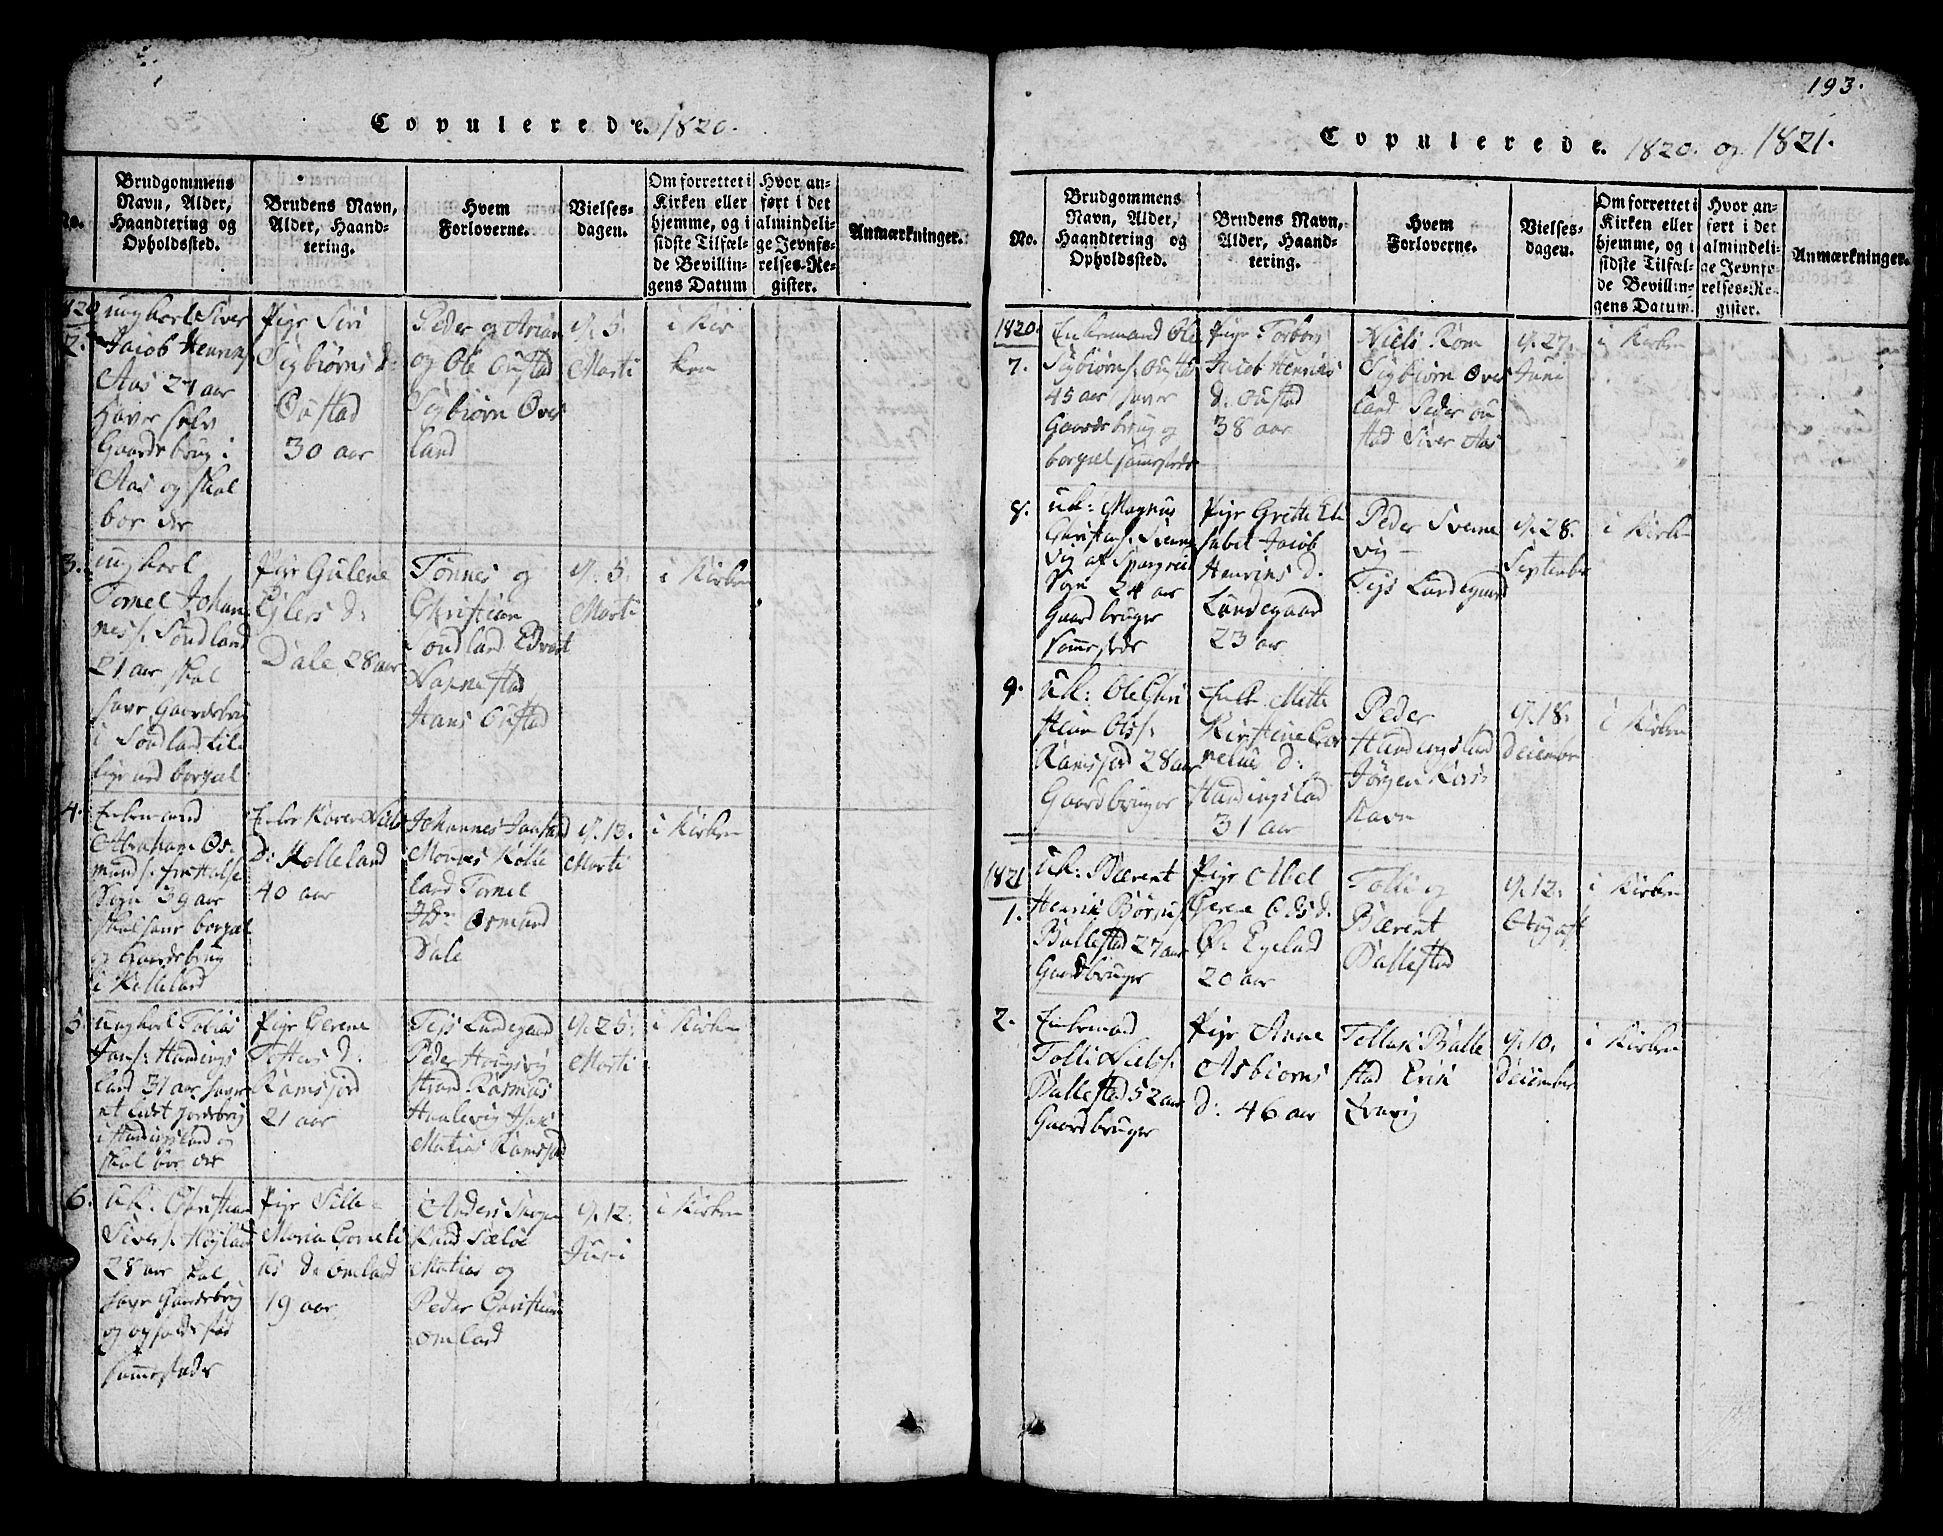 Copulerede. 1820.
No.
Brudgommens
Navn, Alder,
Haandtering og
Opholdssted.
Brudens Navn,
Alder, Haand-
tering.
Hvem
Forloverne.
Vielses-
dagen.
Om forrettet i
Kirken eller
hjemme, og i
sidste Tilfæl-
de Bevillin-
gens Datum
Hvor an-
ført i det
almindeli-
ge Jevnfø-
relses-Re-
gister.
Anmærkninger.
1820
2.
ungkarl Siver
Jacob Henriks
Aas 27 aar
haver selv
Gaardsbrug i
Aas og skal
boe der
Pige Siri
Sigbiørns d:
Oustad
30 aar
Peder og Arian
og Ole Oustad
Sigbiørn Over
land
d. 5.
Marti
i Kir
ken
3.
ungkarl
Tornel Johan
ness. Sondland
21 aar skal
have Gaardsbru
i Sondland
Pige Gulene
Ejlers d:
Dale 28 aar
Tønnes og
Christian
Sondland Edvart
Nappestad
Hans Oustad
d. 5.
Marti
i Kirken
4.
Enkemand
Abraham Os
munds. fra Halse
Sogn 39 aar
skal have bopæl
og Gaardsbrug
i Kolleland
Enke Karen Niels
D: Kolleland
40 aar
Johannes
Mones Kolle
land Tornel
Osmund
Dale
d. 13.
Marti
i Kirken
5.
Ungkarl Tobias
Jans: Handings
land 31 aar haver
et lidet jordebrug
i Handingsland og
skal boe der
Pige Gerene
Tostes d:
Ramsjord
21 aar
Tejs Lundegaard
Peder
Strand Rasmus
Haalevig
Matias Ramsjord
d. 25.
Marti
i Kirken
6.
u.k: Christian
Sivers. Højland
28 aar skal
have Gaardsbrug
og opholdssted
sammestæds
Pige Sille
Maria Corneli
us d: omland
19 aar
Anders
Knud Sæløe
Matias og
Peder Christians
omland
d. 12.
Juni
i Kirken
193.
Copulerede. 1820. og 1821.
No.
Brudgommens
Navn, Alder,
Haandtering og
Opholdssted.
Brudens Navn,
Alder, Haand-
tering.
Hvem
Forloverne.
Vielses-
dagen.
Om forrettet i
Kirken eller
hjemme, og i
sidste Tilfæl-
de Bevillin-
gens Datum.
Hvor an-
ført i det
almindeli-
ge Jevnfø-
relses-Re-
gister.
Anmærkninger.
1820.
7.
Enkemand Ole
Sigbiørns. Oustad
45 aar haver
Gaardsbrug og
bopæl sammestæds
Pige Torbor
Jacob Henriks
d. Oustad
38 aar
Niels Rom
Sigbiørn Over
land Peder Ou
stad Siver Aas
d. 27.
Juni
i Kirken
8.
u.k: Magnus
Christens. Svenne
vig af Spangreid
Sogn 24 aar
Gaardbruger
sammestæds
Pige Grette Eli
sabet Jacob
Henriks d.
Lundegaard
23 aar
Peder Svenne
vig
Tejs Lundegaard
d. 28.
September
i Kirken
9.
u.k: Ole Chri
stian Ols.
Ramsjord 28 aar
Gaardbruger
Enke Mette
Kirstine Cor
nelius d:
Handingsland
31 aar
Peder
Handingsland
Jørgen Kors
havn
d. 18.
Deiember
i Kirken
1821
1.
u.k: Bærent
Henrik Børres.
Ballestad 27 aar
Gaardbruger
Pige Abel
Gerene Ols d.
Ø. Egeland
20 aar
Tolli og
Bærent
Ballestad
d. 12.
August
i Kirken
2.
Enkemand
Tolli Niels.
Ballestad 52 aar
Gaardbruger
Pige Anne
Asbiorns
d: 46 aar
Tellak Balle
stad Erik
d. 10.
Deiember
i Kirken